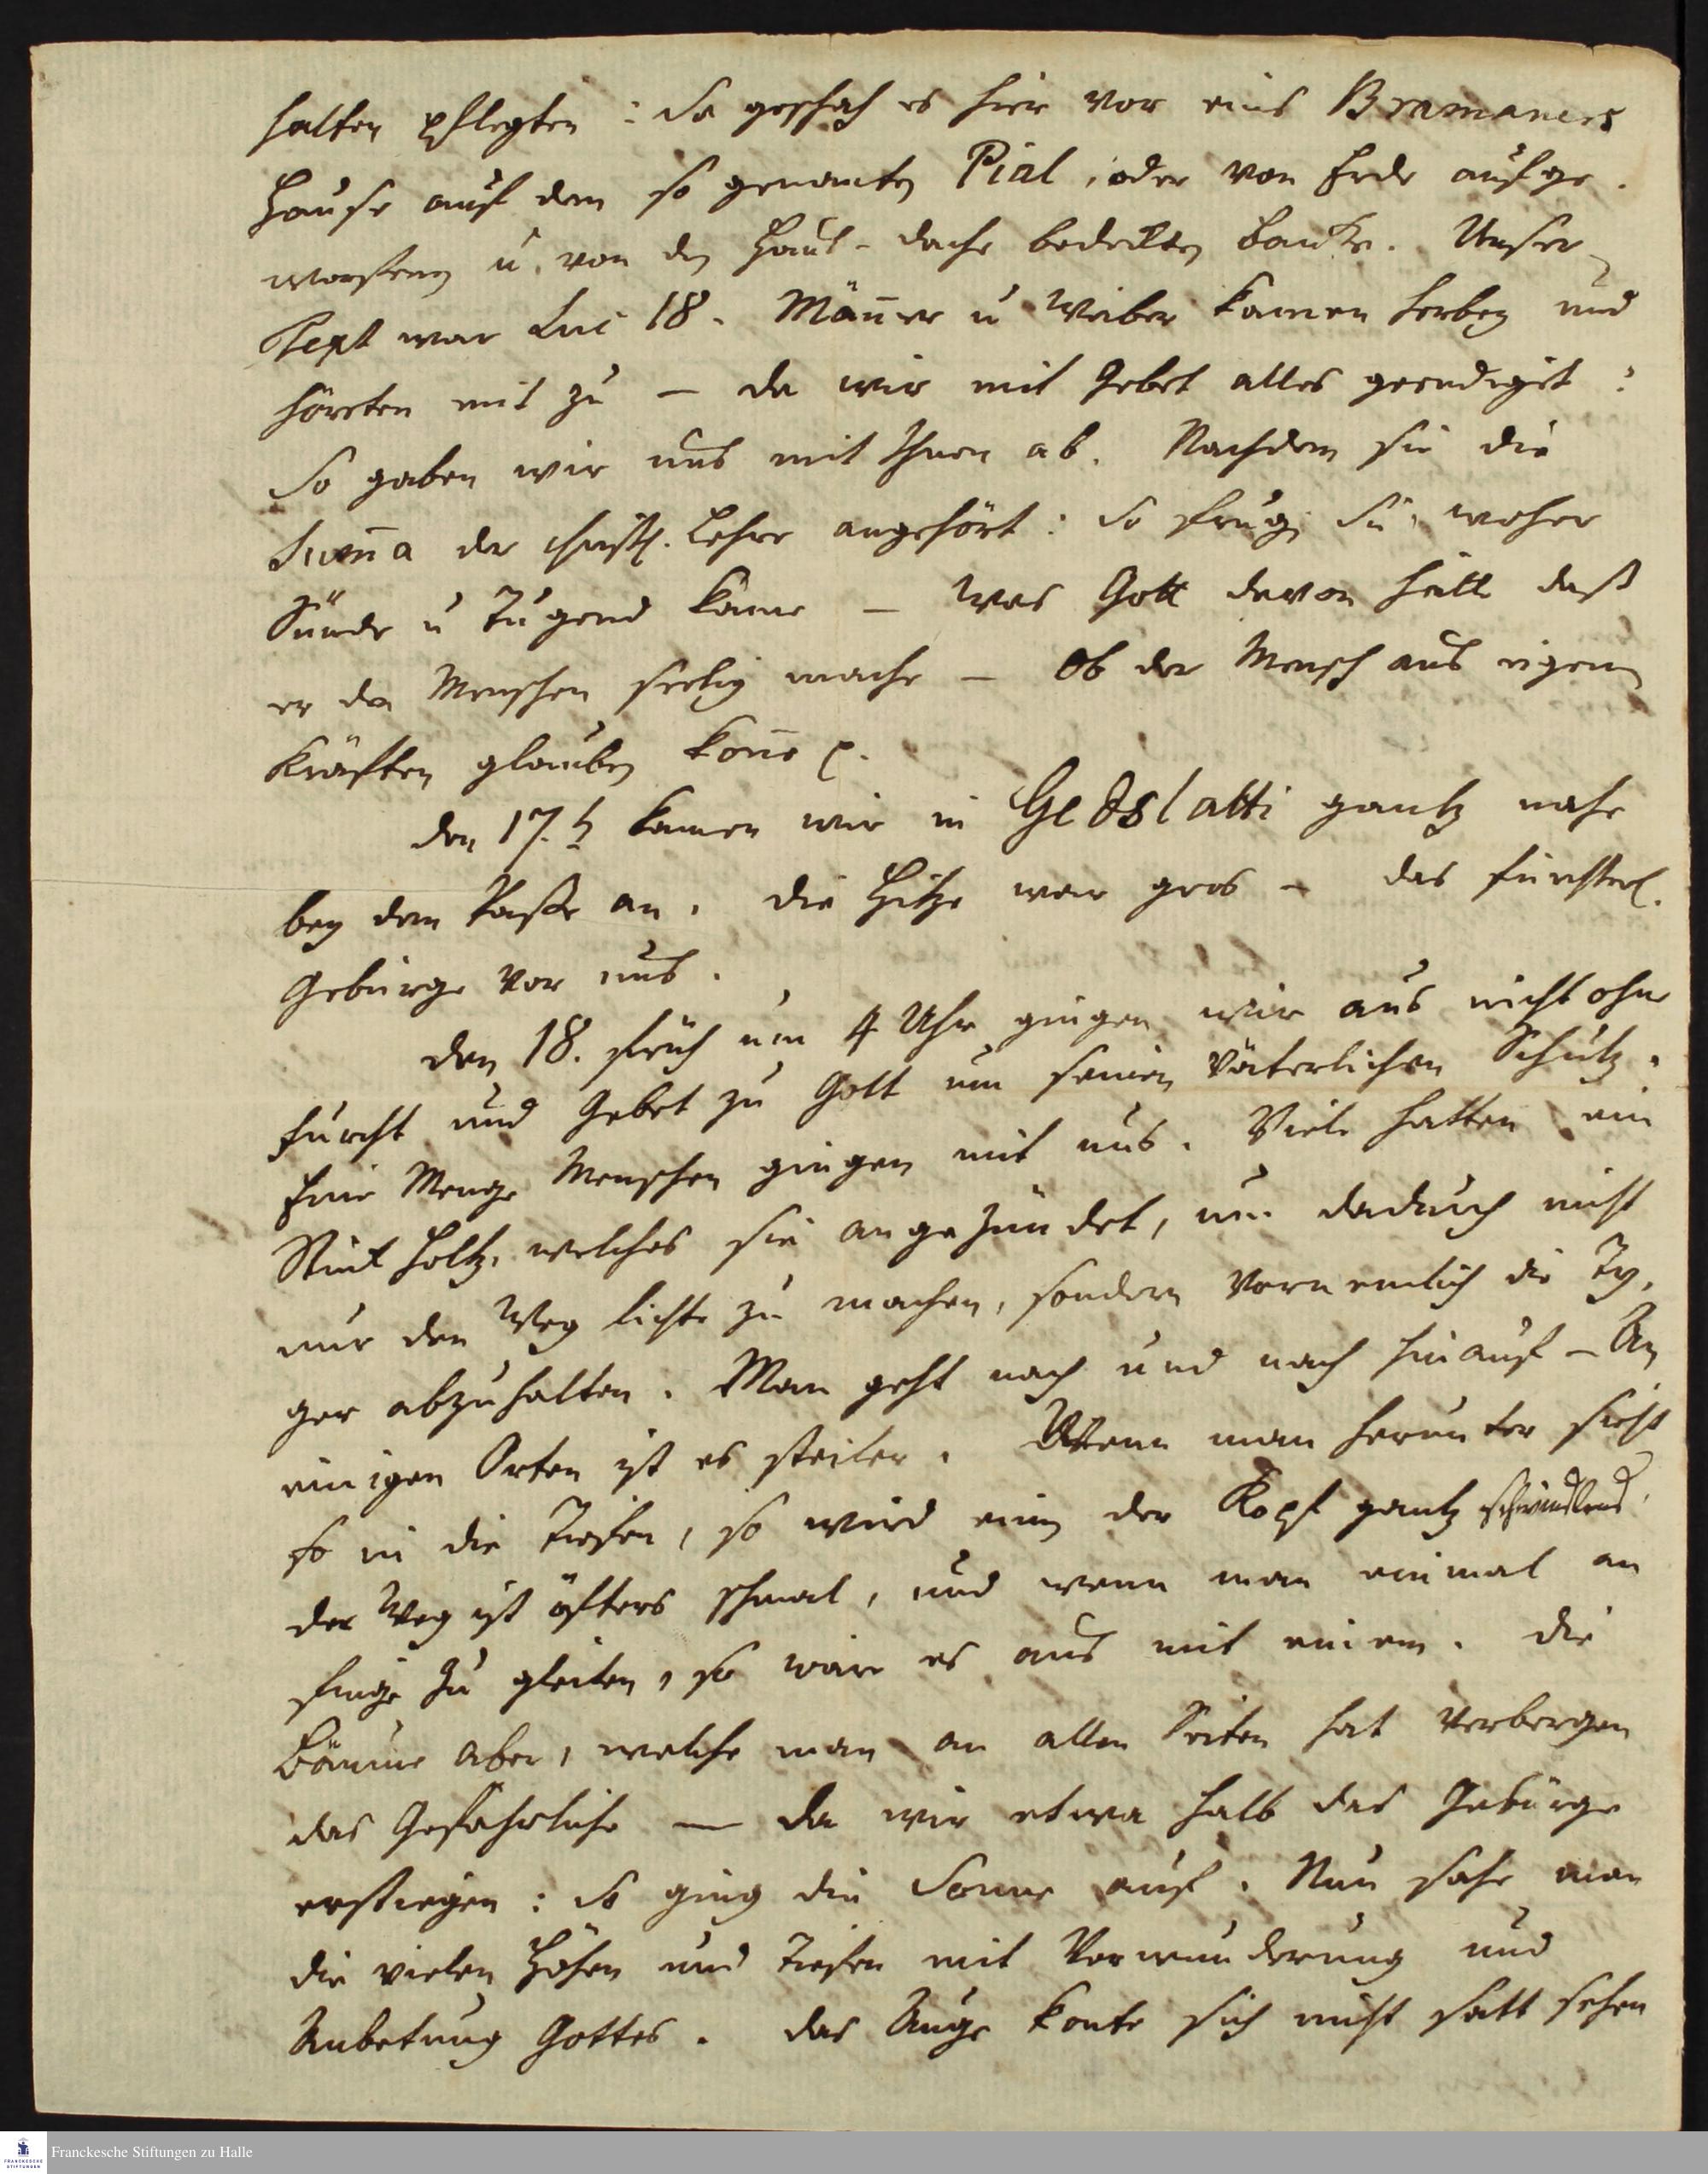 halten pflegten: So geschah es hier vor eines Bramaners
Hause auf dem so genanten Pial, oder von Erde aufge-
worfenen u. von dem Haus-dache bedeckten Bancke. Unser
Text war Luc 18. Männer u Weiber kamen herbey und
hörten mit zu – da wir mit Gebet alles geendiget:
So gaben wir uns mit Ihnen ab. Nachdem sie die
Summa der christl. Lehre angehört: So frugen Sie, woher
Sünde u Tugend käme – was Gott davon hätte daß
er den Menschen seelig mache – Ob der Mensch aus eigenen
Kräften glauben könne p.
den 17. kamen wir in gantz nahe
bey dem Passe an. die Hitze war gros – das fürchterl.
Gebürge vor uns.
den 18. früh um 4 Uhr gingen wir aus nicht ohne
Furcht und Gebet zu Gott um seinen väterlichen Schutz.
Eine Menge Menschen gingen mit uns. Viele hatten ein
Stück Holtz, welches sie angezündet, um dadurch nicht
nur den Weg lichte zu machen, sondern vornemlich die Ty-
ger abzuhalten. Man geht nach und nach hinauf – An
einigen Orten ist es steiler. Wenn man herunter sieht
so in die Tiefen, so wird einem der Kopf gantz schwindlend.
der Weg ist öfters schmal, und wenn man einmal an
finge zu gleiten, so wäre es aus mit einem. Die
Bäume aber, welche man an allen Seiten hat verbergen
das Gefährliche — da wir etwa halb das Gebürge
erstiegen: So ging die Sonne auf. Nun sahe man
die vielen Höhen und Tiefen mit Verwunderung und
Anbetung Gottes. das Auge konte sich nicht satt sehen
Franckesche Stiftungen zu Halle